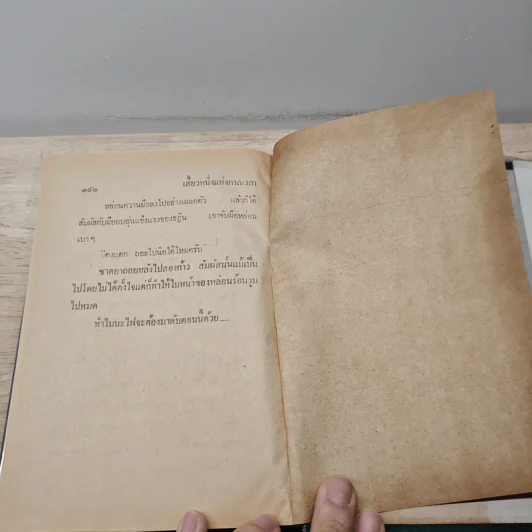 ๓๕๒ เสี้ยวหนึ่งแห่งกาลเวลา
หล่อนควานมือลงไปอย่างเผลอตัว แล้วก็ได้
สัมผัสกับมืออบอุ่นแข็งแรงของชฎิน เขาจับมือหล่อน
เบา ๆ
"คงแตก ถอยไปนิดได้ไหมครับ"
ชาตยาถอยหลังไปสองก้าว สัมผัสนั้นแม้เป็น
ไปโดยไม่ได้ตั้งใจแต่ก็ทำให้ใบหน้าของหล่อนร้อนวูบ
ไปหมด
ทำไมนะไฟจะต้องมาดับตอนนี้ด้วย....